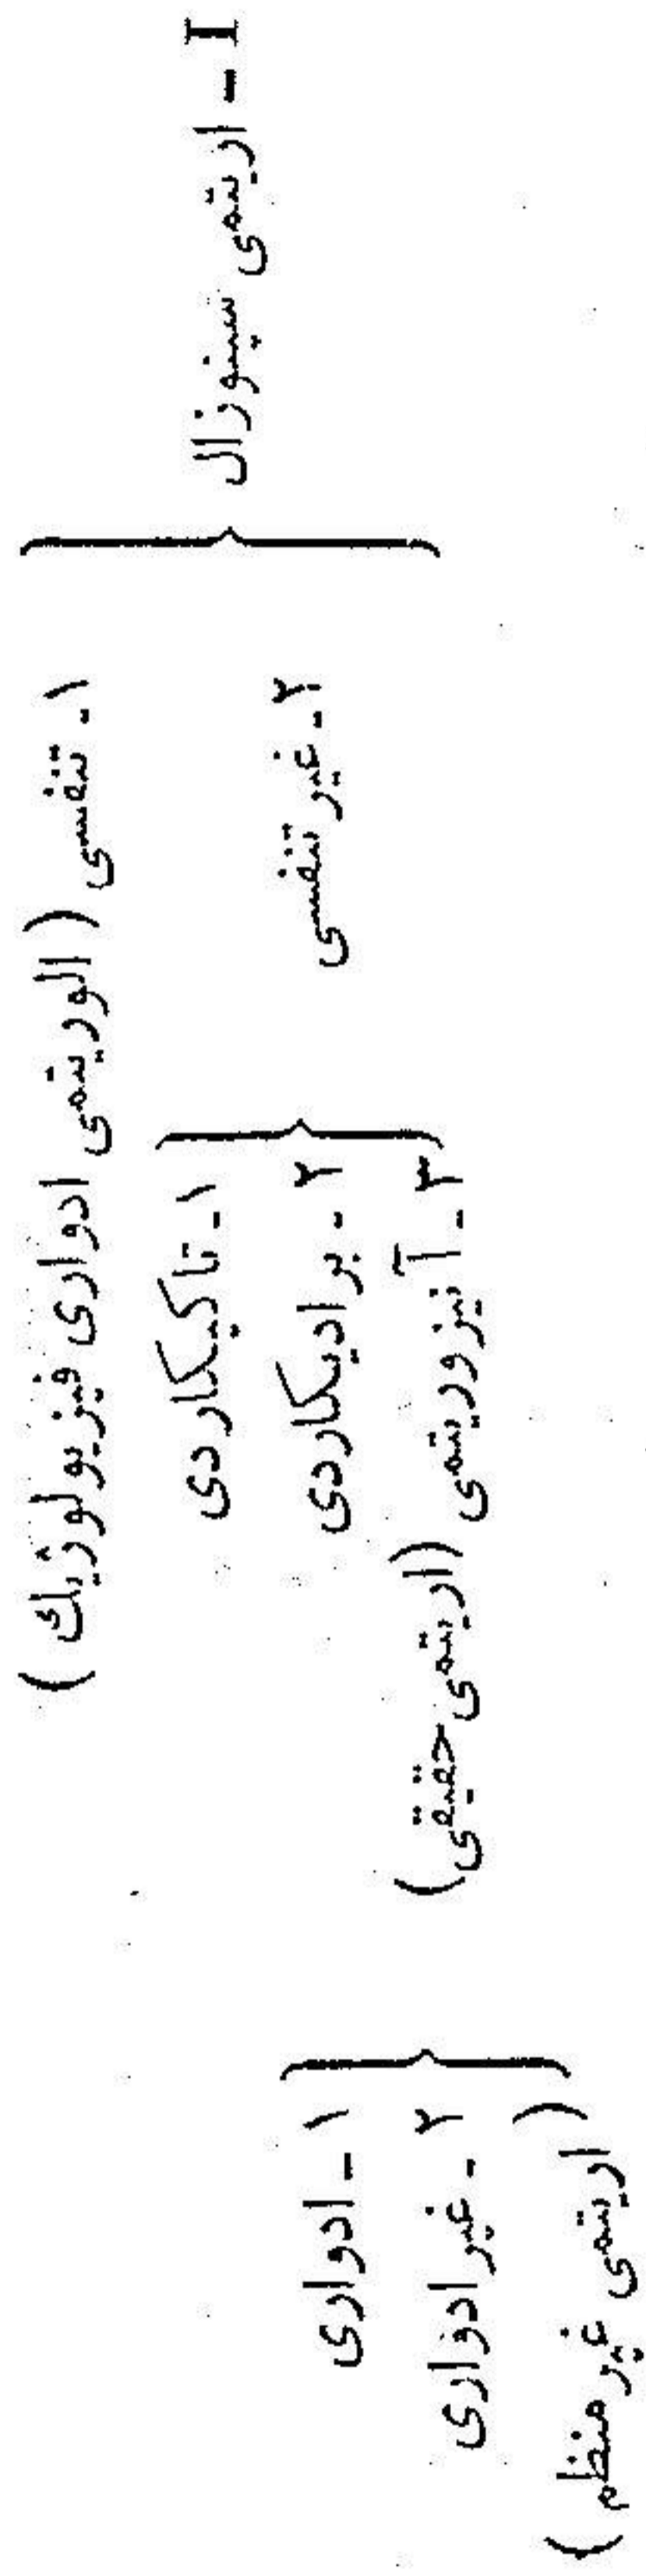 I - اریتمی سینوزال
۱- تنفسی (الوریتمی ادواری فیزیولوژیك)
۲- غیر تنفسی
۱- تاکیکاردی
۲- برادیکاردی
۳- آنیزوریتمی (اریتمی حقیقی)
۱- ادواری
۲- غیر ادواری
(اریتمی غیر منظم)